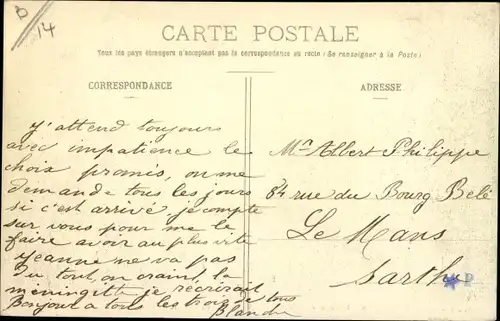 D
14
CARTE POSTALE
Tous les pays étrangers n'acceptent pas la correspondance au recto (Se renseigner à la Poste)
CORRESPONDANCE
ADRESSE
j'attend toujours
avec impatience le
choix promis, on me
demande tous les jours
si c'est arrivé je compte
sur vous pour me le
faire avoir au plus vite
Jeanne ne va pas
du tout, on craint la
méningite je récrirai
Bonjour à tous les trois de tous
Blanche
Mr Albert Philippe
84 rue du Bourg Belé
Le Mans
Sarthe
P